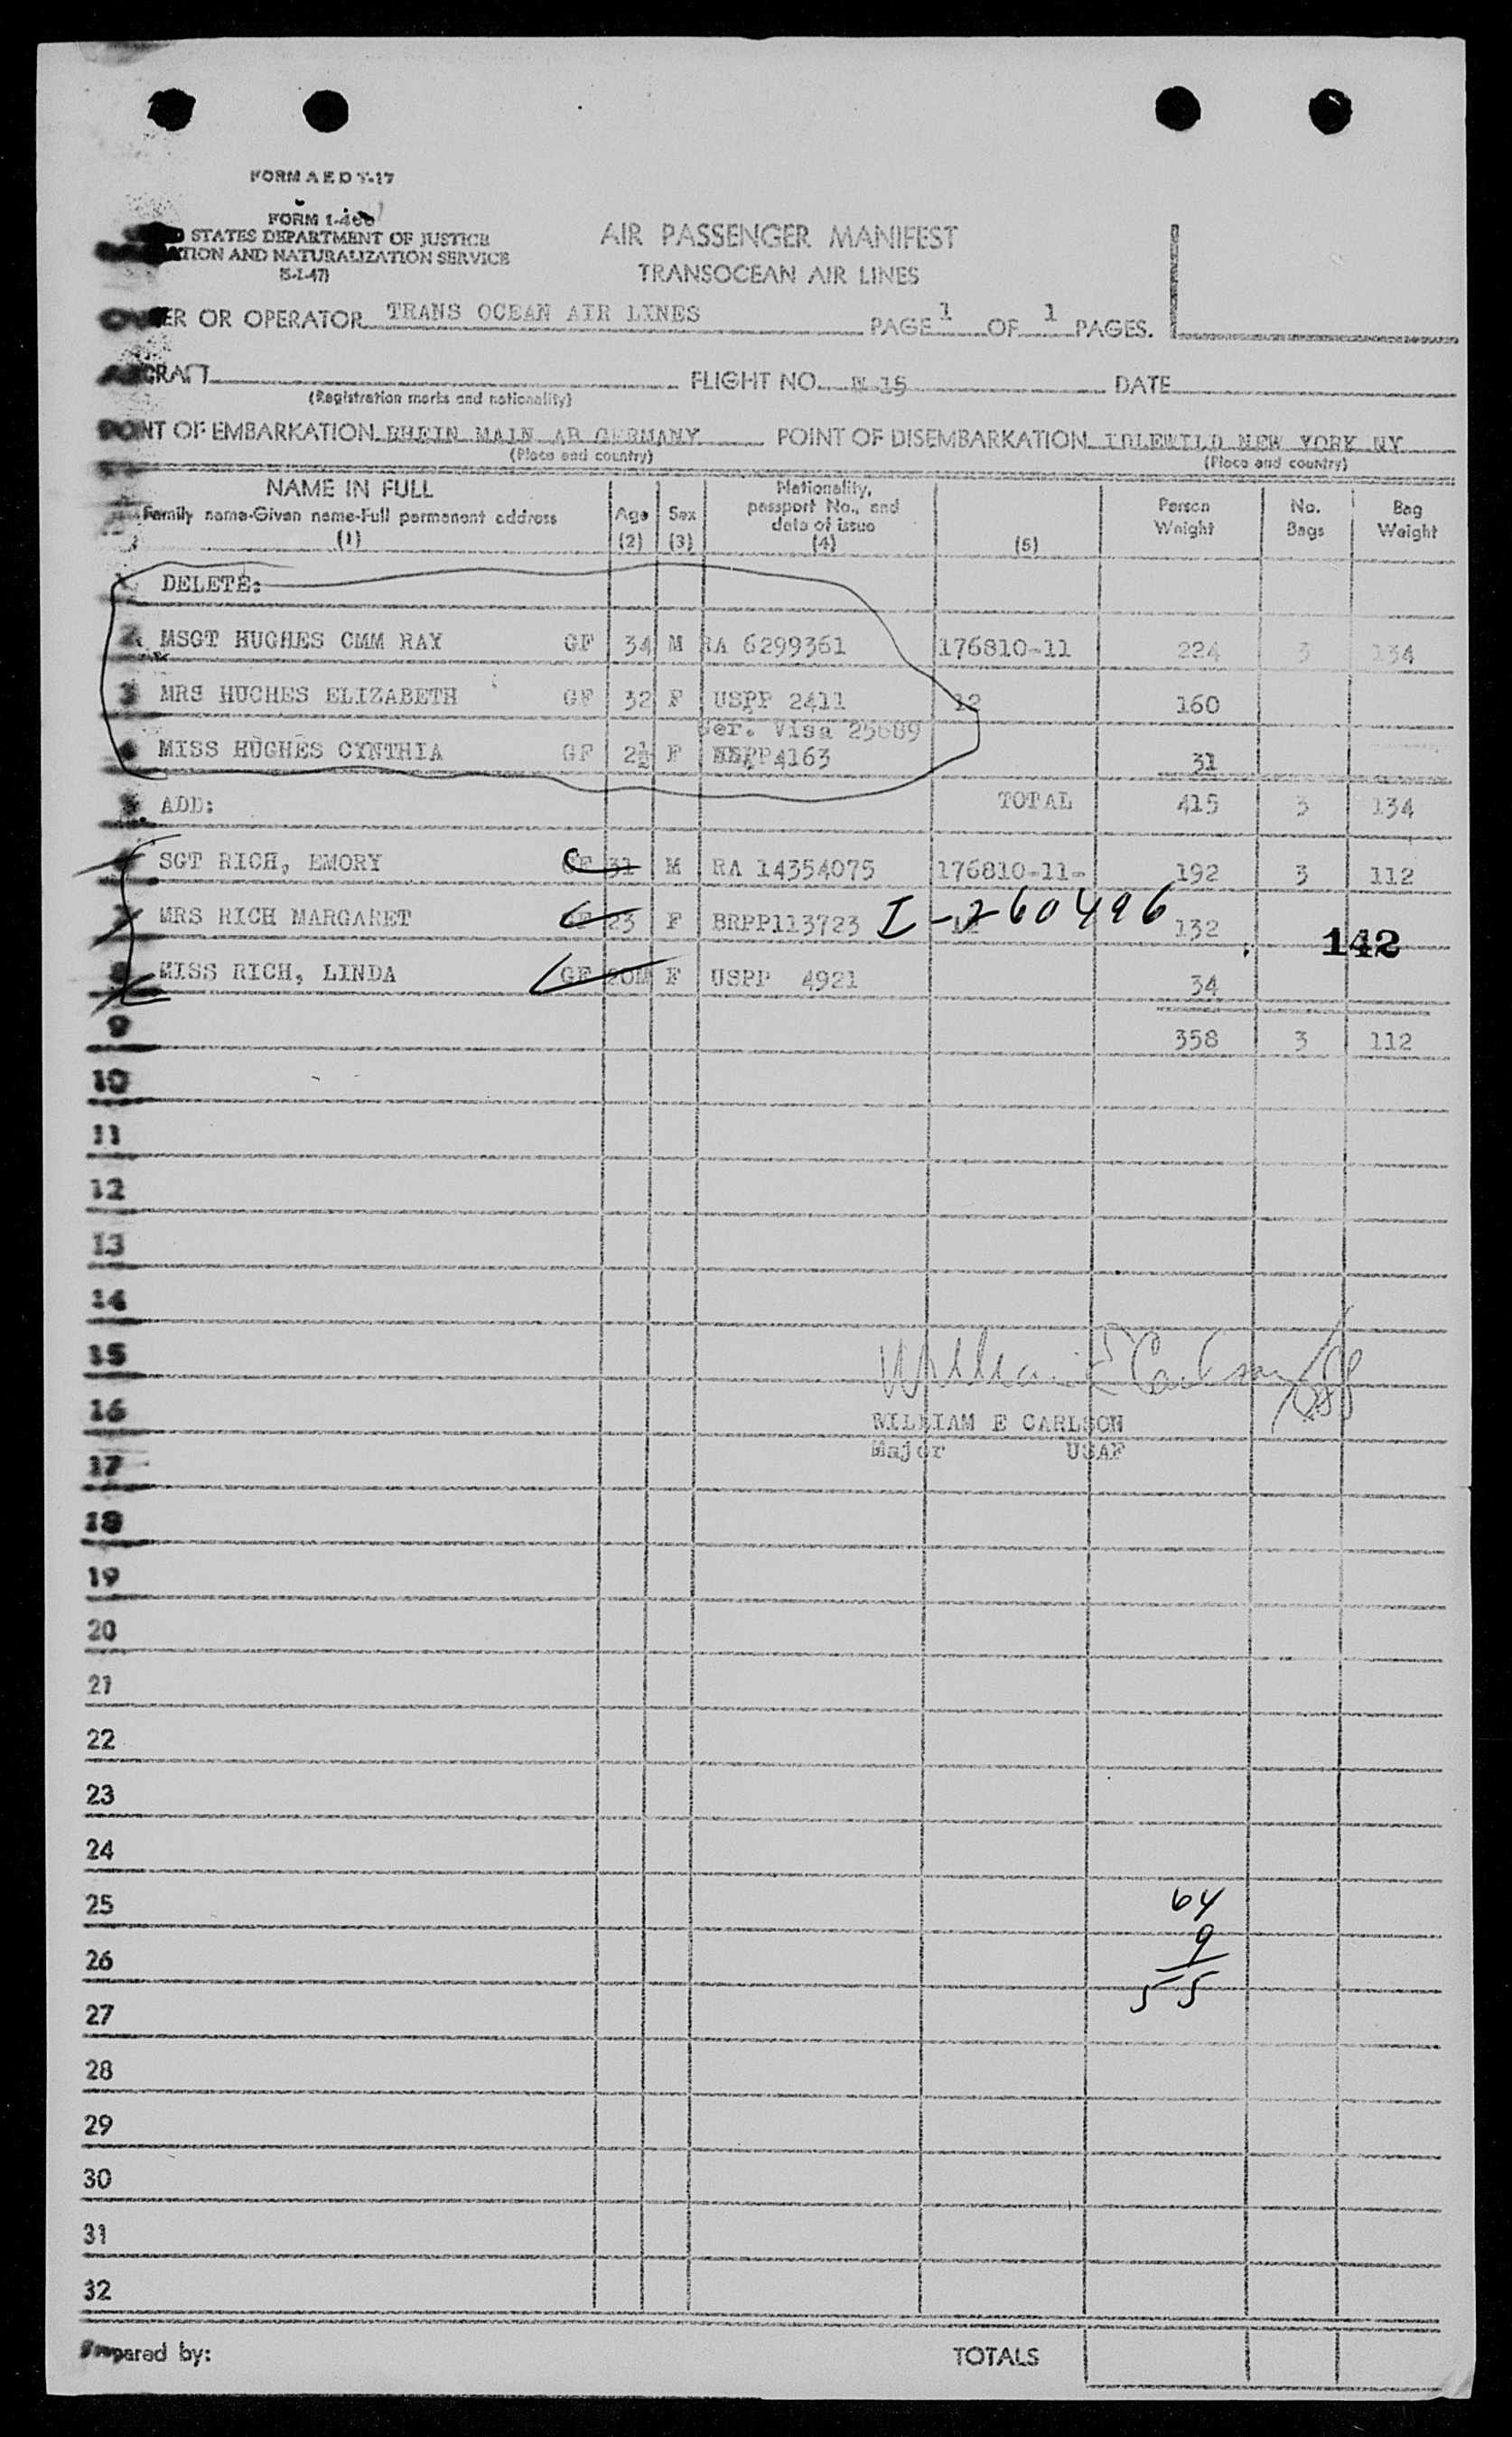 FORM A E D T-17
FORM I-466
STATES DEPARTMENT OF JUSTICE
ATION AND NATURALIZATION SERVICE
(5-1-47)
AIR PASSENGER MANIFEST
TRANSOCEAN AIR LINES
OWNER OR OPERATOR TRANS OCEAN AIR LINES PAGE 1 OF 1 PAGES.
AIRCRAFT FLIGHT NO. W 15 DATE
(Registration marks and nationality)
POINT OF EMBARKATION RHEIN MAIN AB GERMANY POINT OF DISEMBARKATION IDLEWILD NEW YORK NY
(Place and country) (Place and country)
NAME IN FULL
Family name-Given name-Full permanent address
(1)
Age
(2)
Sex
(3)
Nationality,
passport No., and
date of issue
(4)
(5)
Person
Weight
No.
Bags
Bag
Weight
1 DELETE:
2 MSGT HUGHES CMM RAY GF 34 M RA 6299361 176810-11 224 3 134
3 MRS HUGHES ELIZABETH GF 32 F USPP 2411 12 160
Ger. Visa 25689
4 MISS HUGHES CYNTHIA GF 2½ F USPP4163 31
5 ADD: TOTAL 415 3 134
6 SGT RICH, EMORY GF 31 M RA 14354075 176810-11- 192 3 112
7 MRS RICH MARGARET GF 23 F BRPP113723 I-260496 12 132
142
8 MISS RICH, LINDA GF 20M F USPP 4921 34
9 358 3 112
10
11
12
13
14
15
William E Carlson
16 WILLIAM E CARLSON
17 Major USAF
18
19
20
21
22
23
24
25 64
26 9
27 55
28
29
30
31
32
Prepared by: TOTALS